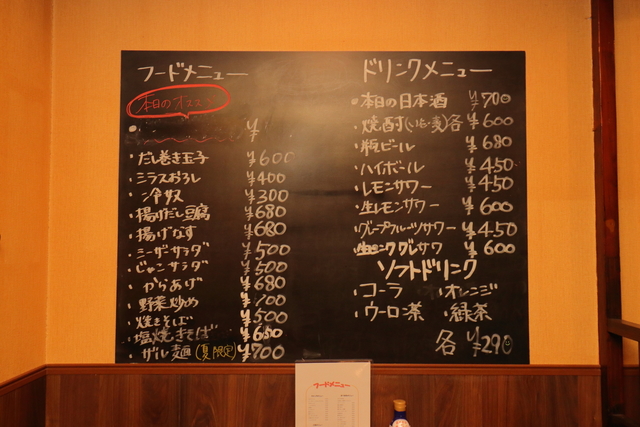 フードメニュー
本日のオススメ
¥
・だし巻き玉子 ¥600
・シラスおろし ¥400
・冷奴 ¥300
・揚げだし豆腐 ¥680
・揚げなす ¥680
・シーザーサラダ ¥500
・じゃこサラダ ¥500
・からあげ ¥680
・野菜炒め ¥700
・焼きそば ¥500
・塩焼きそば ¥650
・ザル麺(夏限定) ¥700
ドリンクメニュー
・本日の日本酒 ¥700
・焼酎(いも・麦)各 ¥600
・瓶ビール ¥680
・ハイボール ¥450
・レモンサワー ¥450
・生レモンサワー ¥600
・グレープフルーツサワー ¥450
¥600
ソフトドリンク
・コーラ ・オレンジ
・ウーロ茶 ・緑茶
各 ¥290
フードメニュー